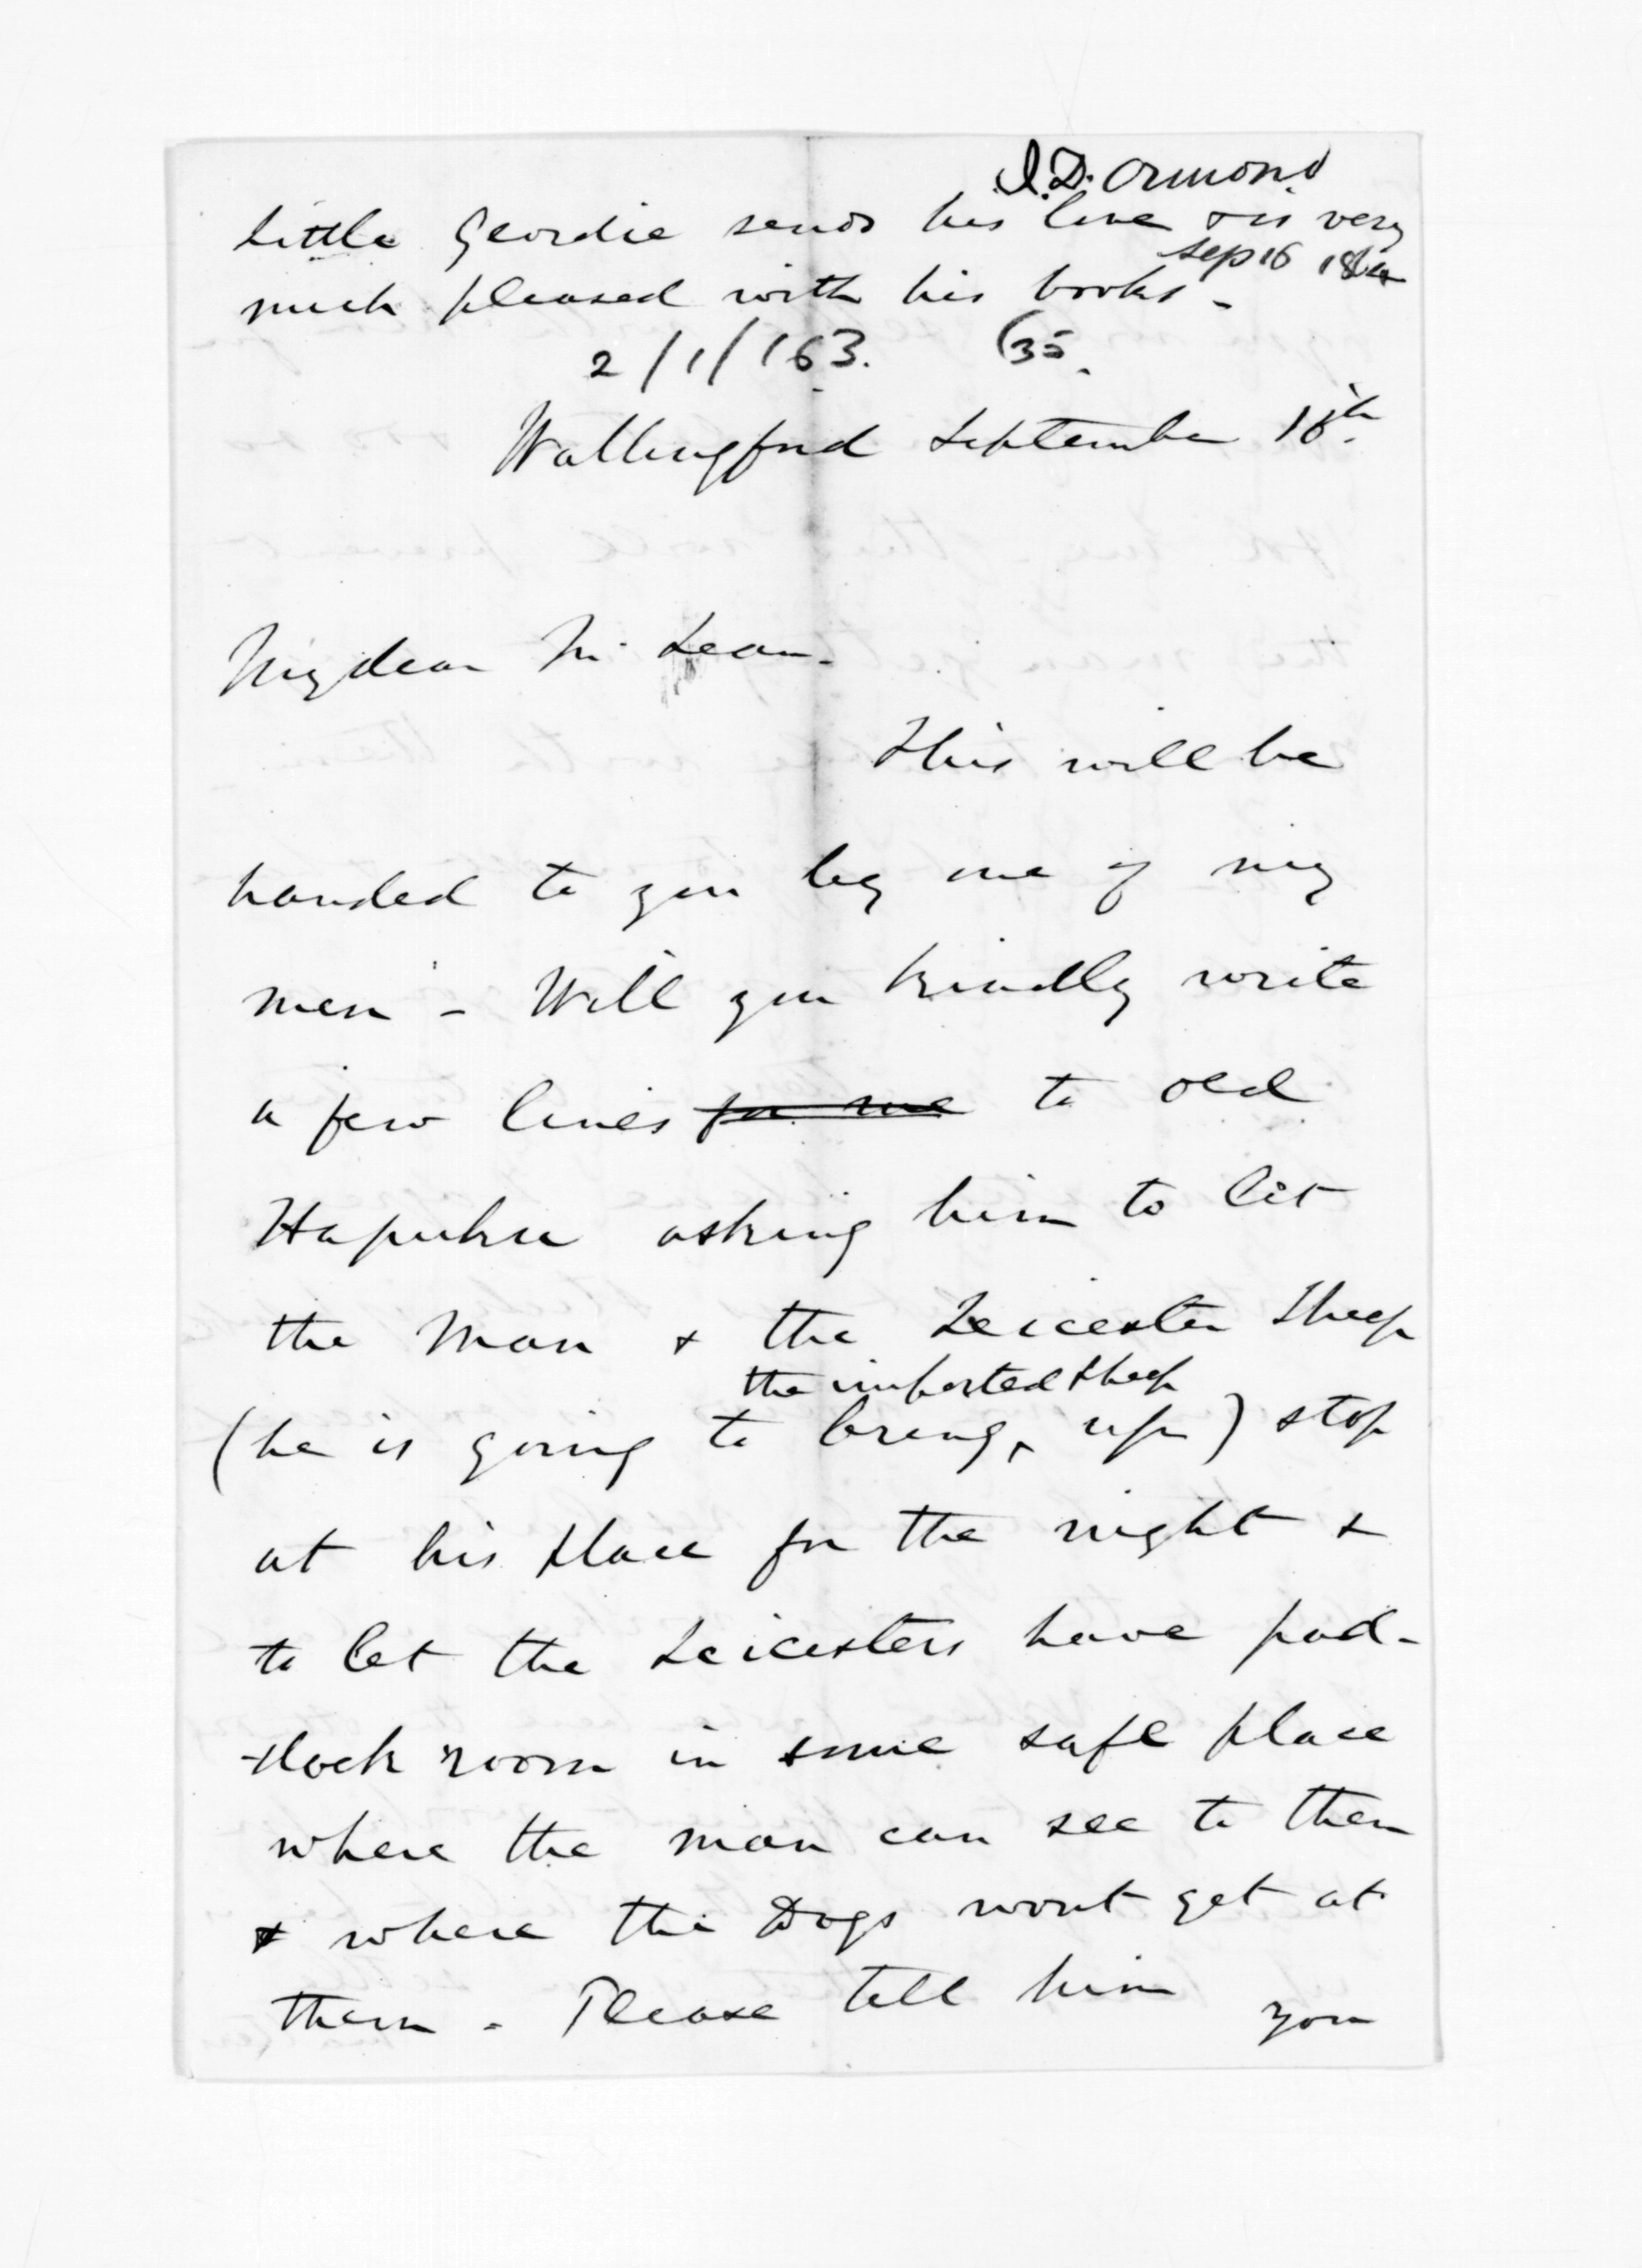 J.D. Ormond
Little Geordie sends his love & is very
Sep 16
much pleased with his books -
2/1/163. (35.
Wallingford September 16th.
My dear McLean.
This will be
handed to you by one of my
men - Will you kindly write
a few lines for me to old
Hapuku asking him to let
the Man & the Leicester Sheep
the imported sheep
(he is going to bring ‸ up) stop
at his place for the night &
to let the Leicesters have pad-
-dock room in some safe place
where the man can see to them
& where the Dogs wont get at
them - Please tell him you